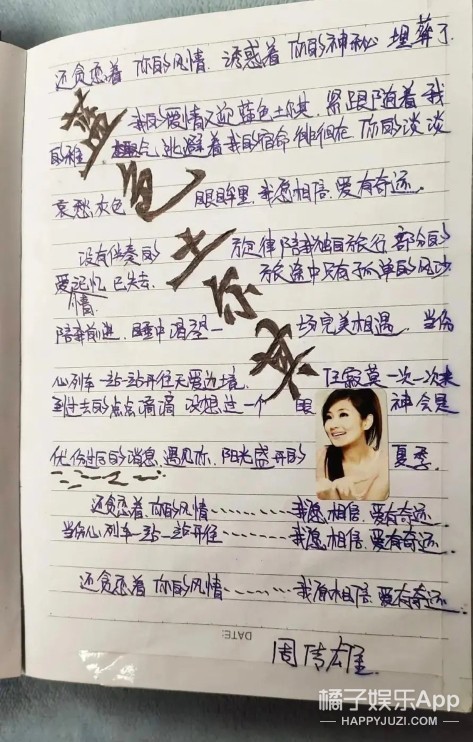 还贪恋着 你的风情 诱惑着 你的神秘 埋葬了
我的爱情 又逆蓝色土耳其 紧跟随着我
的雅 起点 逃避着我的宿命 徘徊在 你的淡淡
哀愁 灰色 眼眸里 我愿相信 爱有奇迹
没有伴奏的 旋律陪我独自旅行 部分的
爱情记忆 已失去 旅途中只有孤单的风沙
陪我前进 睡中渴望一 场完美相遇 当伤
心列车一站一站开往无爱边境 任寂寞一次一次来
到过去的点点滴滴 没想过一个 眼 神会是
忧伤过后的消息 遇见你 阳光盛开的 夏季
还贪恋着 你的风情 ………… 我愿相信 爱有奇迹
当伤心列车一站一站开往 ………… 我愿相信 爱有奇迹
还贪恋着 你的风情 ………… 我愿相信 爱有奇迹
蓝色土耳其
DATE:
周传雄
橘子娱乐App
—HAPPYJUZI.COM—